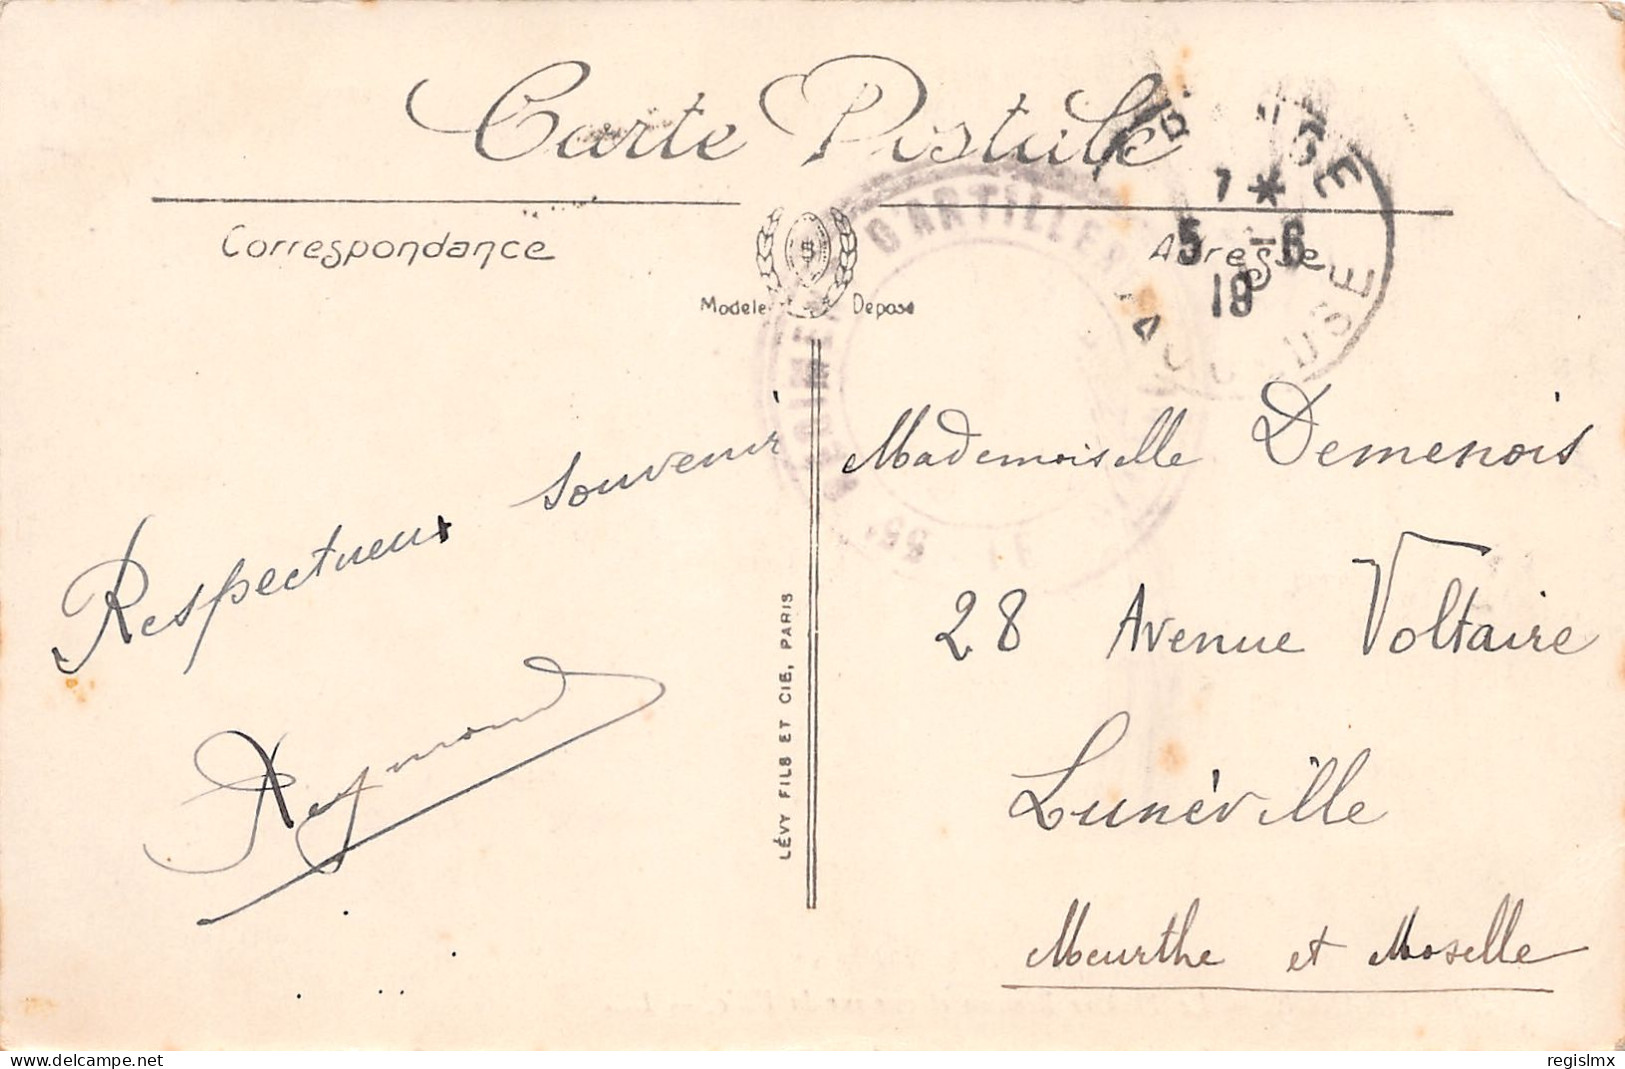 Carte Postale
Correspondance
Adresse
Modele Depose
D'ARTILLERIE
55e
7 *
5 -6
19
LÉVY FILS ET CIE, PARIS
Respectueux souvenir
Raymond
Mademoiselle Demenois
28 Avenue Voltaire
Lunéville
Meurthe et Moselle
www.delcampe.net
regislmx